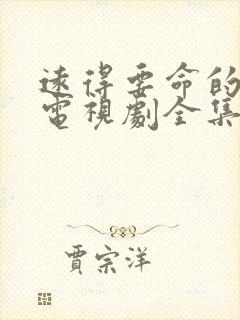 遠得要命的
電視劇全集
賈宗洋